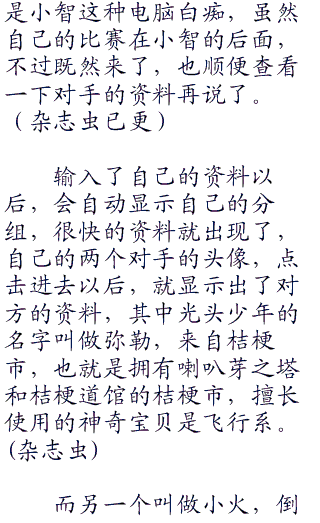 是小智这种电脑白痴，虽然
自己的比赛在小智的后面，
不过既然来了，也顺便查看
一下对手的资料再说了。
（杂志虫已更）
输入了自己的资料以
后，会自动显示自己的分
组，很快的资料就出现了，
自己的两个对手的头像，点
击进去以后，就显示出了对
方的资料，其中光头少年的
名字叫做弥勒，来自桔梗
市，也就是拥有喇叭芽之塔
和桔梗道馆的桔梗市，擅长
使用的神奇宝贝是飞行系。
(杂志虫)
而另一个叫做小火，倒